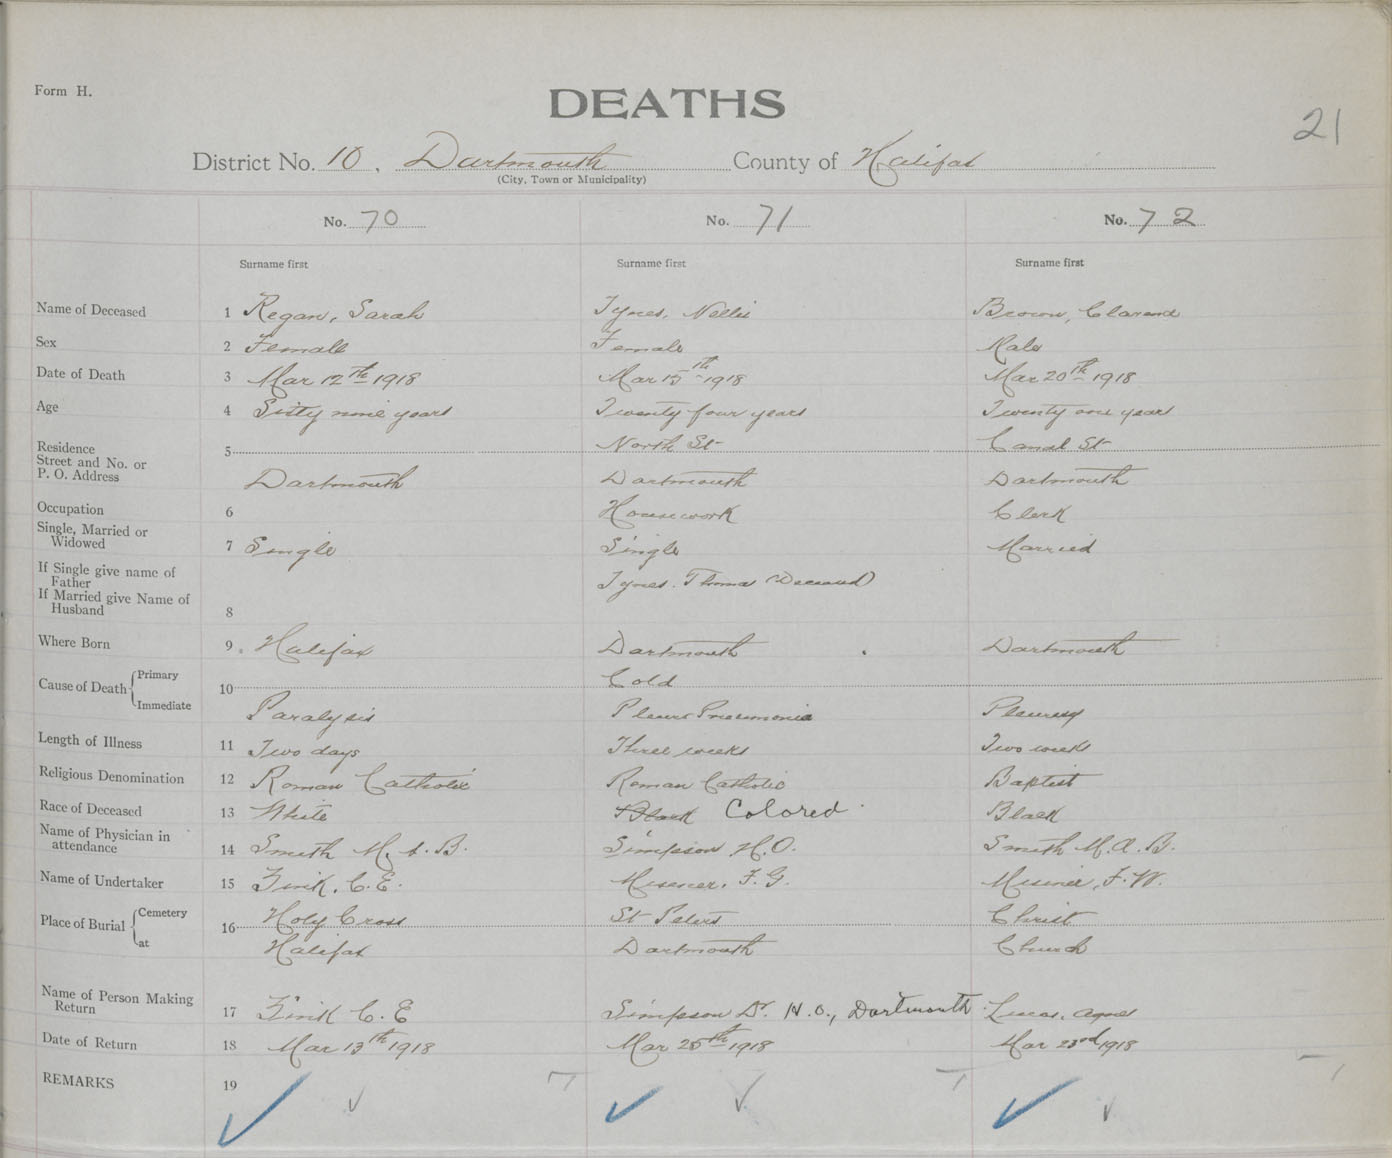 Form H.
DEATHS
21
District No. 10, Dartmouth County of Halifax
(City, Town or Municipality)
No. 70 No. 71 No. 72
Surname first Surname first Surname first
Name of Deceased 1 Regan, Sarah Tynes, Nellie Brown, Clarence
Sex 2 Female Female Male
Date of Death 3 Mar 12th 1918 Mar 15th 1918 Mar 20th 1918
Age 4 Sixty nine years Twenty four years Twenty one years
Residence
Street and No. or
P. O. Address
5 North St Canal St
Dartmouth Dartmouth Dartmouth
Occupation 6 Housework Clerk
Single, Married or
Widowed 7 Single Single Married
If Single give name of
Father
Tynes. Thomas (Deceased)
If Married give Name of
Husband 8
Where Born 9 Halifax Dartmouth Dartmouth
Cause of Death Primary 10 Cold
Immediate Paralysis Pleuro Pneumonia Pleurisy
Length of Illness 11 Two days Three weeks Two weeks
Religious Denomination 12 Roman Catholic Roman Catholic Baptist
Race of Deceased 13 White Black Colored Black
Name of Physician in
attendance 14 Smith M. A. B. Simpson H.O. Smith M. A. B.
Name of Undertaker 15 Zink, C. E. Misener, F. G. Misener, F. W.
Place of Burial Cemetery 16 Holy Cross St Peters Christ
at Halifax Dartmouth Church
Name of Person Making
Return 17 Zink C. E Simpson Dr. H. O., Dartmouth Lucas, Agnes
Date of Return 18 Mar 13th 1918 Mar 25th 1918 Mar 23rd 1918
REMARKS 19